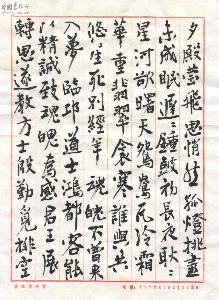 夕殿螢飛思悄然孤燈挑盡
未成眠遲〻鐘鼓初長夜耿〻
星河欲曙天鴛鴦瓦冷霜
華重翡翠衾寒誰與共
悠〻生死別經年魂魄不曾来
入夢臨邛道士鴻都客能
以精誠致魂魄為感君王展
轉思遂教方士殷勤覓排空